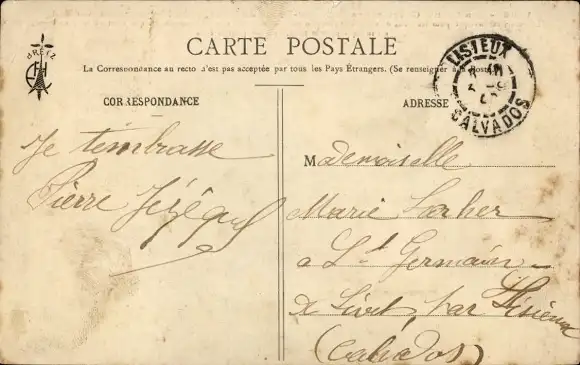 BRETZ
CARTE POSTALE
La Correspondance au recto n'est pas acceptée par tous les Pays Étrangers. (Se renseigner à la Poste)
LISIEUX
CALVADOS
CORRESPONDANCE
ADRESSE
Je t'embrasse
Pierre Jézéquel
Mademoiselle
Marie
à St Germain
de Livet, par Lisieux
(Calvados)